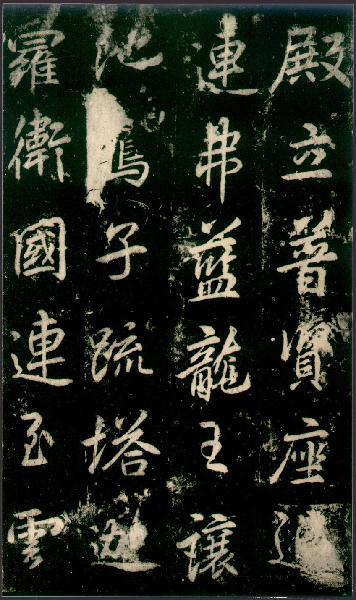 殿立普賢座
連弗藍龍王讓
池子疏塔迦
羅衛國連至雲